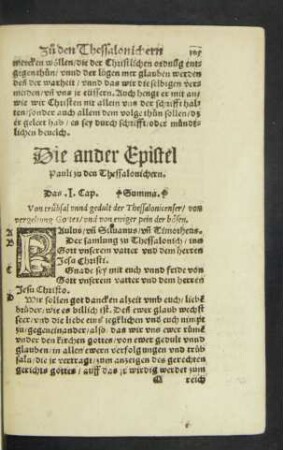 Zů den Thessalonichern
wercken wöllen/die der Christlichen ordnũg ent=
gegen thůn/ vnnd der lügen mer glauben werden
den der warheit/ vnnd das wir die selbigen ver=
meiden/vñ vns ir eüssern. Auch hengt er mit an/
wie wir Christen nit allein vns der schrifft hal=
ten/sonder auch allem dem volge thůn sollen/dz
er geleet hab/ es sey durch schrifft/oder mündt=
lichen beuelch.
Die ander Epistel
Pauli zů den Thessalonichern.
Das .I. Cap. Summa.
Von trübsal vnnd gedult der Thessalonicenser/ von
vergeltung Gottes/vnd von ewiger pein der bösen.
A PAulus/vñ Siluanus/vñ Timotheus.
B Der samlung zů Thessalonich/ inn
Gott vnserem vatter vnd dem herren
Jesu Christi.
Gnade sey mit euch vnnd fride von
Gott vnserem vatter vnd dem herren
Jesu Christo.
D Wir sollen got dancken alzeit vmb euch/ liebe
brüder/wie es billich ist. Deñ ewer glaub wechst
seer/vnd die liebe eins ieglichen vnd euch nimpt
zů/gegeneinander/also/ das wir vns ewer rümẽ
vnder den kirchen gottes/ von ewer gedult vnnd
glauben/in allen ewern verfolgungen vnd trüb
salu/die ir vertragt/zum anzeigen des gerechten
gerichts gottes/ auff das ir wirdig werdet zum
reich